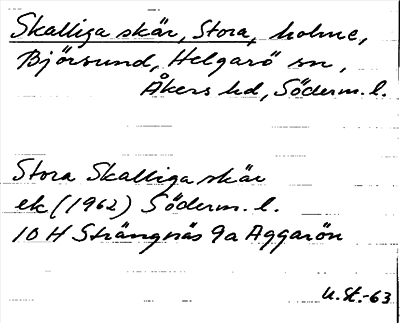 Skalliga skär, Stora, holme,
Björsund, Helgarö sn,
Åkers hd, Söderm. l.
Stora Skalliga skär
ek (1962) Söderm. l.
10 H Strängnäs 9a Aggarön
U.St.-63